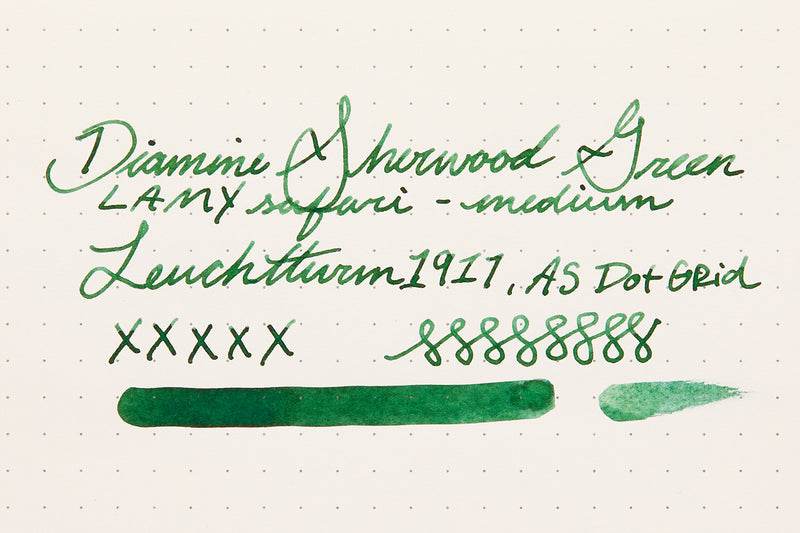 Diamine Sherwood Green
LAMY safari - medium
Leuchtturm1917, A5 Dot Grid
X X X X X